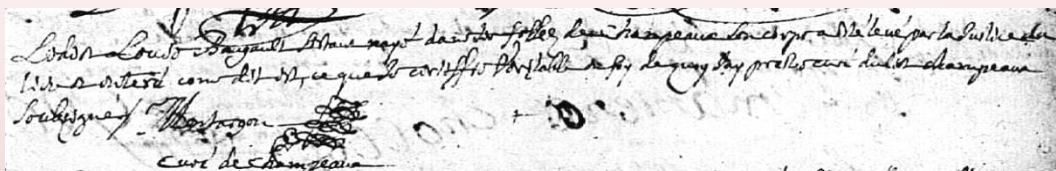 Ledit Louis Bargault s'estant noyé dans les fossez de Champeaux son corps a esté levé par la Justice du
lieu et enterré comme dit est, ce que Je certiffie veritable en foy de quoy J'ay prebstre curé dudit champeaux
soubsigné
curé de Champeaux